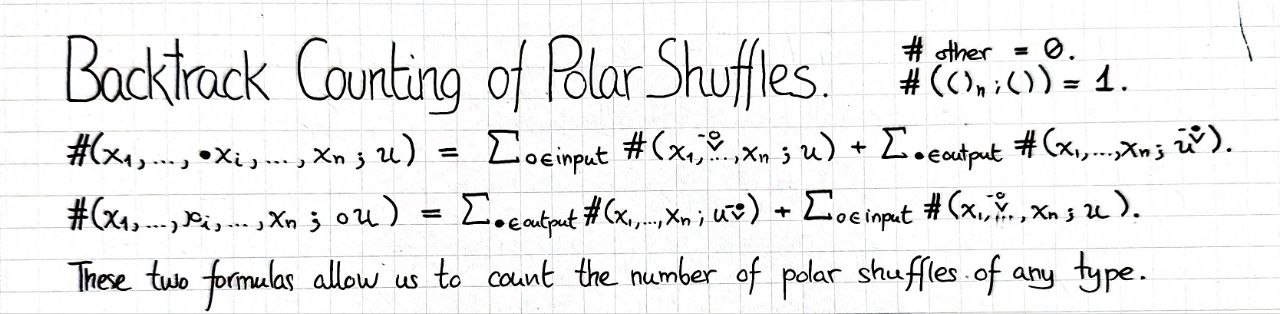 Backtrack Counting of Polar Shuffles.
# other = 0.
# (()ₙ; ()) = 1.
#(x₁, ..., •xᵢ, ..., xₙ ; u) = ∑∘∈input #(x₁, ..., xₙ ; u) + ∑•∈output #(x₁, ..., xₙ ; u).
#(x₁, ..., xᵢ, ..., xₙ ; ∘u) = ∑•∈output #(x₁, ..., xₙ ; u) + ∑∘∈input #(x₁, ..., xₙ ; u).
These two formulas allow us to count the number of polar shuffles of any type.